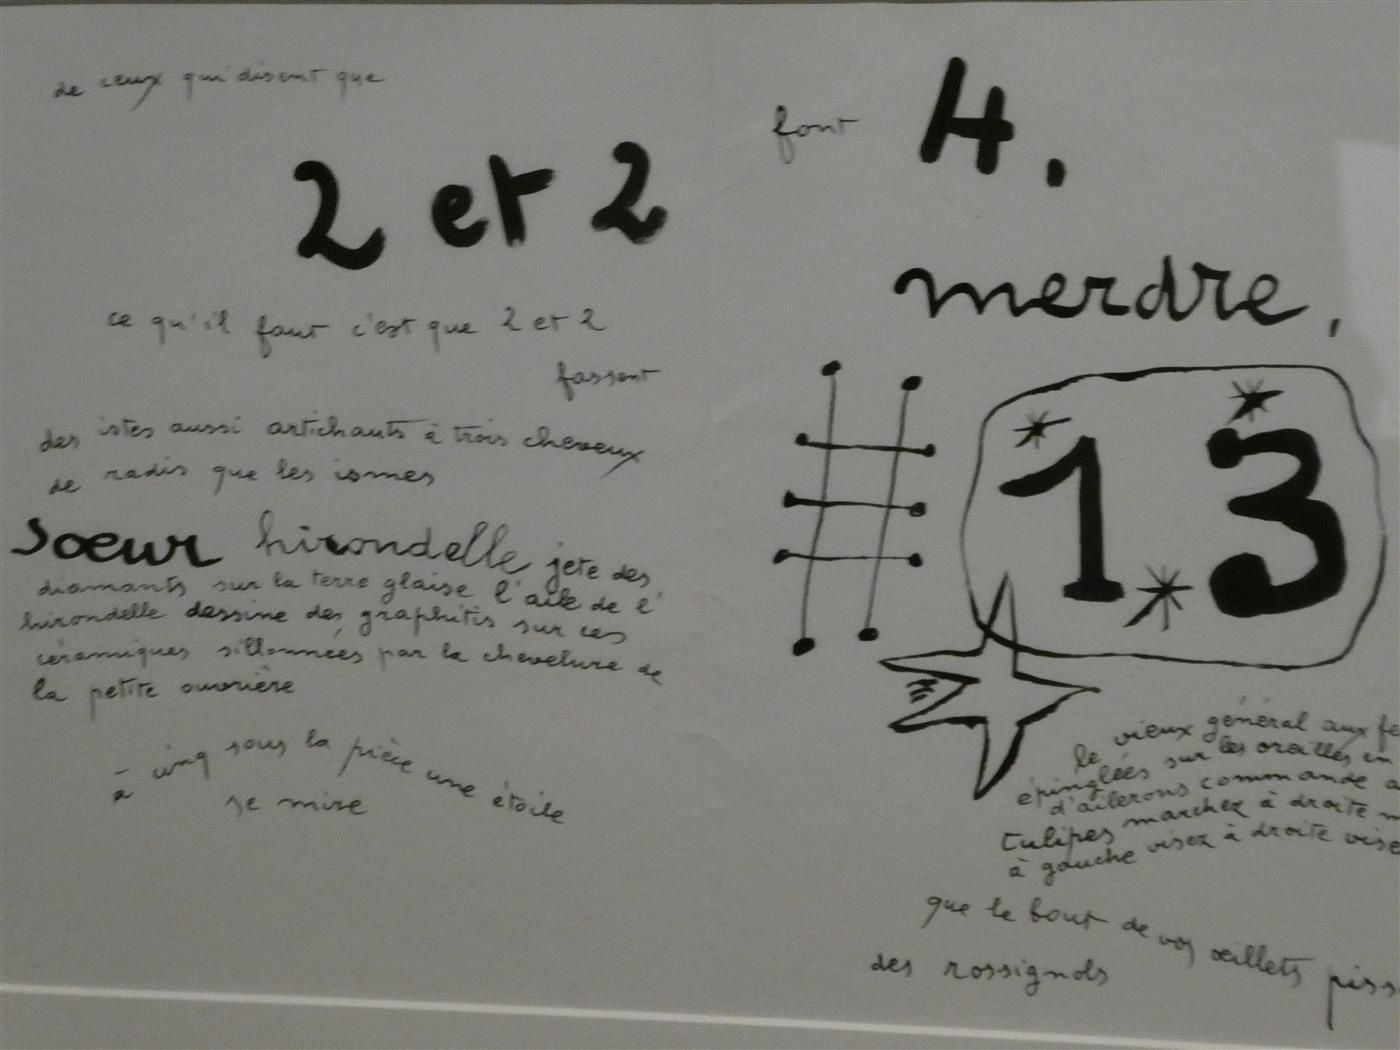 de ceux qui disent que
2 et 2
ce qu'il faut c'est que 2 et 2
fassent
des istes aussi artichauts à trois cheveux
de radis que les ismes
soeur hirondelle jete des
diamants sur la terre glaise l'aile de l'
hirondelle dessine des graphitis sur ces
céramiques sillonnées par la chevelure de
la petite ouvrière
à cinq sous la pièce une étoile
se mire
font 4.
merdre,
13
le vieux général aux fe
épinglées sur les oreilles en
d'ailerons commande a
tulipes marchez à droite m
à gauche visez à droite vise
que le bout de vos œillets piss
des rossignols